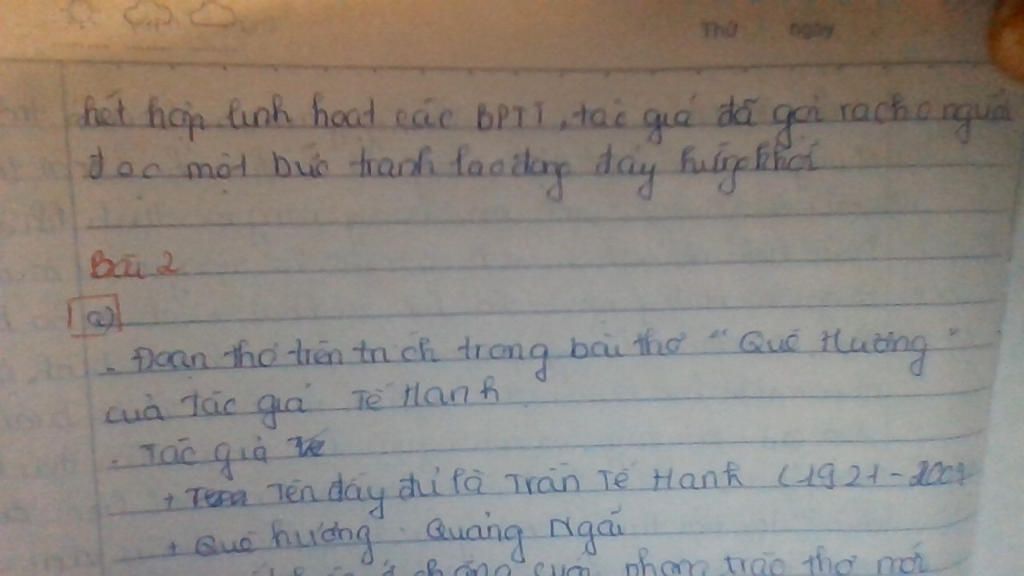 Thứ ngày
kết hợp linh hoạt các BPTT, tác giả đã gợi ra cho người
đọc một bức tranh lao động đầy hứng khởi
Bài 2
a)
- Đoạn thơ trên trích trong bài thơ "Quê Hương"
của Tác giả Tế Hanh
- Tác giả
+ Tên đầy đủ là Trần Tế Hanh (1921-2009
+ Quê hương : Quảng Ngãi
chặng cuối phong trào thơ mới